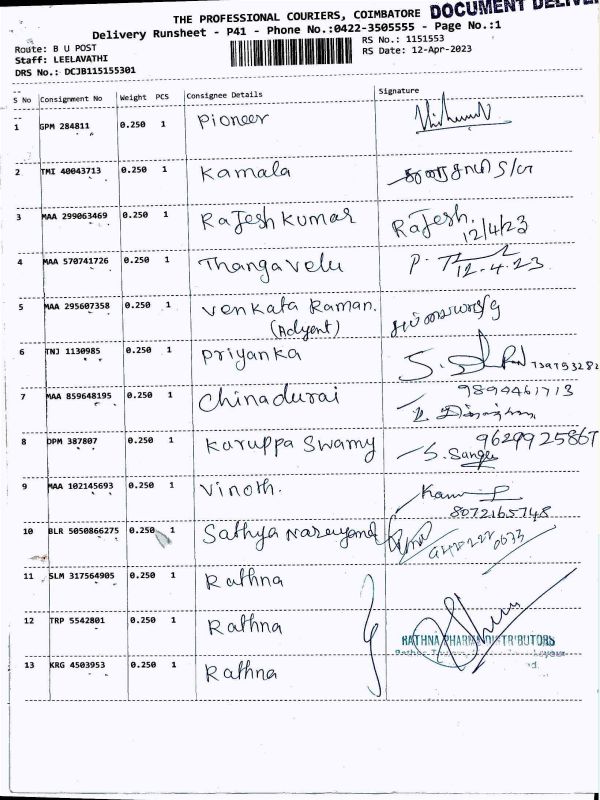 THE PROFESSIONAL COURIERS, COIMBATORE DOCUMENT DELIVER
Delivery Runsheet - P41 - Phone No.:0422-3505555 - Page No.:1
Route: B U POST
RS No.: 1151553
Staff: LEELAVATHI
RS Date: 12-Apr-2023
DRS No.: DCJB115155301
S No Consignment No Weight PCS Consignee Details Signature
1 GPM 284811 0.250 1 Pioneer
2 TMI 40043713 0.250 1 Kamala
3 MAA 299063469 0.250 1 RaJesh kumar RaJesh.
12/4/23
4 MAA 570741726 0.250 1 Thangavelu P.
12.4.23
5 MAA 295607358 0.250 1 Venkata Raman.
(Adyent)
6 TNJ 1130985 0.250 1 Priyanka S.
7 MAA 859648195 0.250 1 Chinadurai 9894461713
8 DPM 387807 0.250 1 Karuppa Swamy 9629925867
S. Sangee
9 MAA 102145693 0.250 1 Vinoth.
8072165748
10 BLR 5050866275 0.250 1 Sathya Narayana
11 SLM 317564905 0.250 1 Rathna
12 TRP 5542801 0.250 1 Rathna
RATHNA PHARMA DISTRIBUTORS
13 KRG 4503953 0.250 1 Rathna